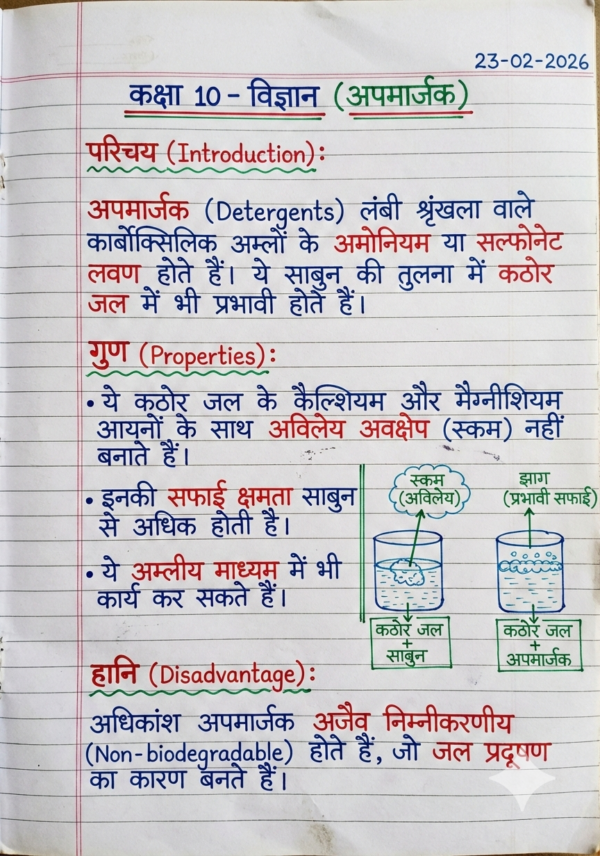 23-02-2026
कक्षा 10 - विज्ञान (अपमार्जक)
परिचय (Introduction):
अपमार्जक (Detergents) लंबी श्रृंखला वाले
कार्बोक्सिलिक अम्लों के अमोनियम या सल्फोनेट
लवण होते हैं। ये साबुन की तुलना में कठोर
जल में भी प्रभावी होते हैं।
गुण (Properties):
• ये कठोर जल के कैल्शियम और मैग्नीशियम
आयनों के साथ अविलेय अवक्षेप (स्कम) नहीं
बनाते हैं।
• इनकी सफाई क्षमता साबुन
से अधिक होती है।
• ये अम्लीय माध्यम में भी
कार्य कर सकते हैं।
स्कम
(अविलेय)
कठोर जल
+
साबुन
झाग
(प्रभावी सफाई)
कठोर जल
+
अपमार्जक
हानि (Disadvantage):
अधिकांश अपमार्जक अजैव निम्नीकरणीय
(Non-biodegradable) होते हैं, जो जल प्रदूषण
का कारण बनते हैं।